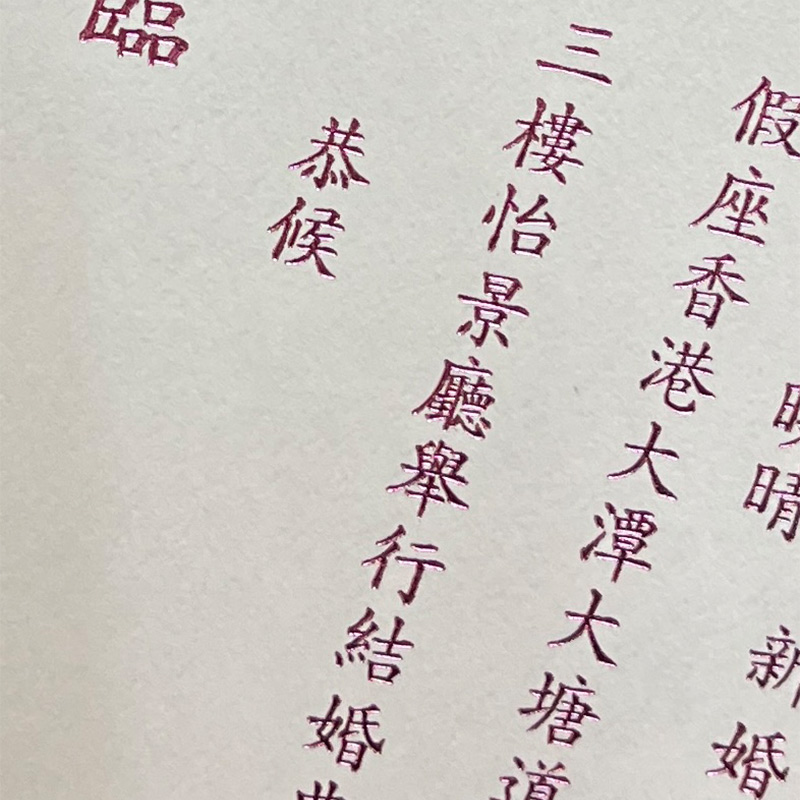 晴 新婚
假座香港大潭大塘道
三樓怡景廳舉行結婚
恭候
臨